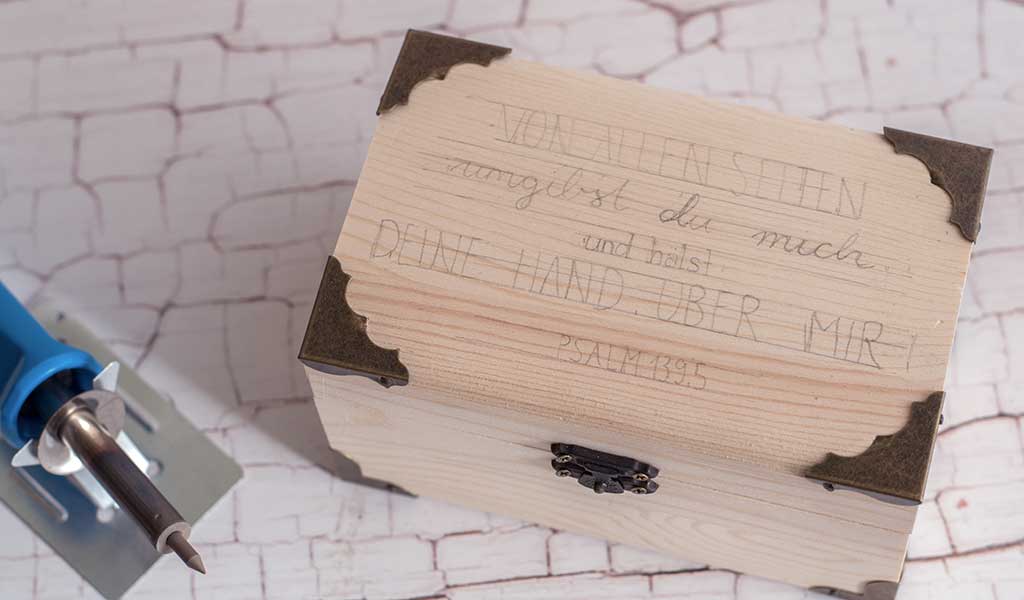 VON ALLEN SEITEN
umgibst du mich...
und hälst
DEINE HAND ÜBER MIR!
PSALM 139.5